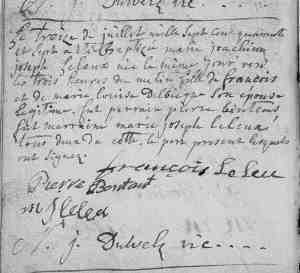 Le troize de juillet mille sept cent quarante
et sept a été baptisée marie joachim
joseph Leleux née le même jour vers
les trois heures du matin fille de francois
et de marie Louise Delbecque son epouse
legitime, fut parrain pierre
fut marraine marie joseph Leleux
tous deux de cette, le pere present lesquels
ont signez
francois Leleu
Pierre
m J leleu
J. j. Dulvek vic....